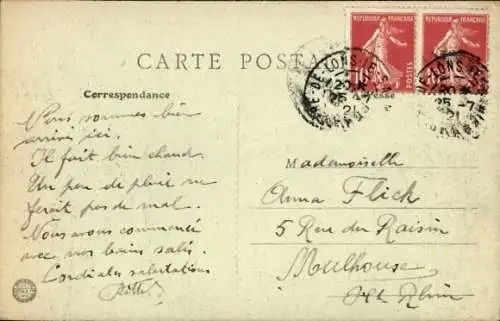 CARTE POST
REPUBLIQUE FRANÇAISE
10
POSTES
REPUBLIQUE FRANÇAISE
GARE-DE-LONS-LE-S
12
25-7
21
JURA
LONS-LE-S
20
25-7
21
JURA
Correspondance
resse
Nous sommes bien
arrivés ici.
Il fait bien chaud.
Un peu de pluit ne
ferait pas de mal.
Nous avons commencé
avec nos bains salés.
Cordiales salutations
Mademoiselle
Anna Flick
5 Rue du Raisin
Mulhouse
Ht Rhin